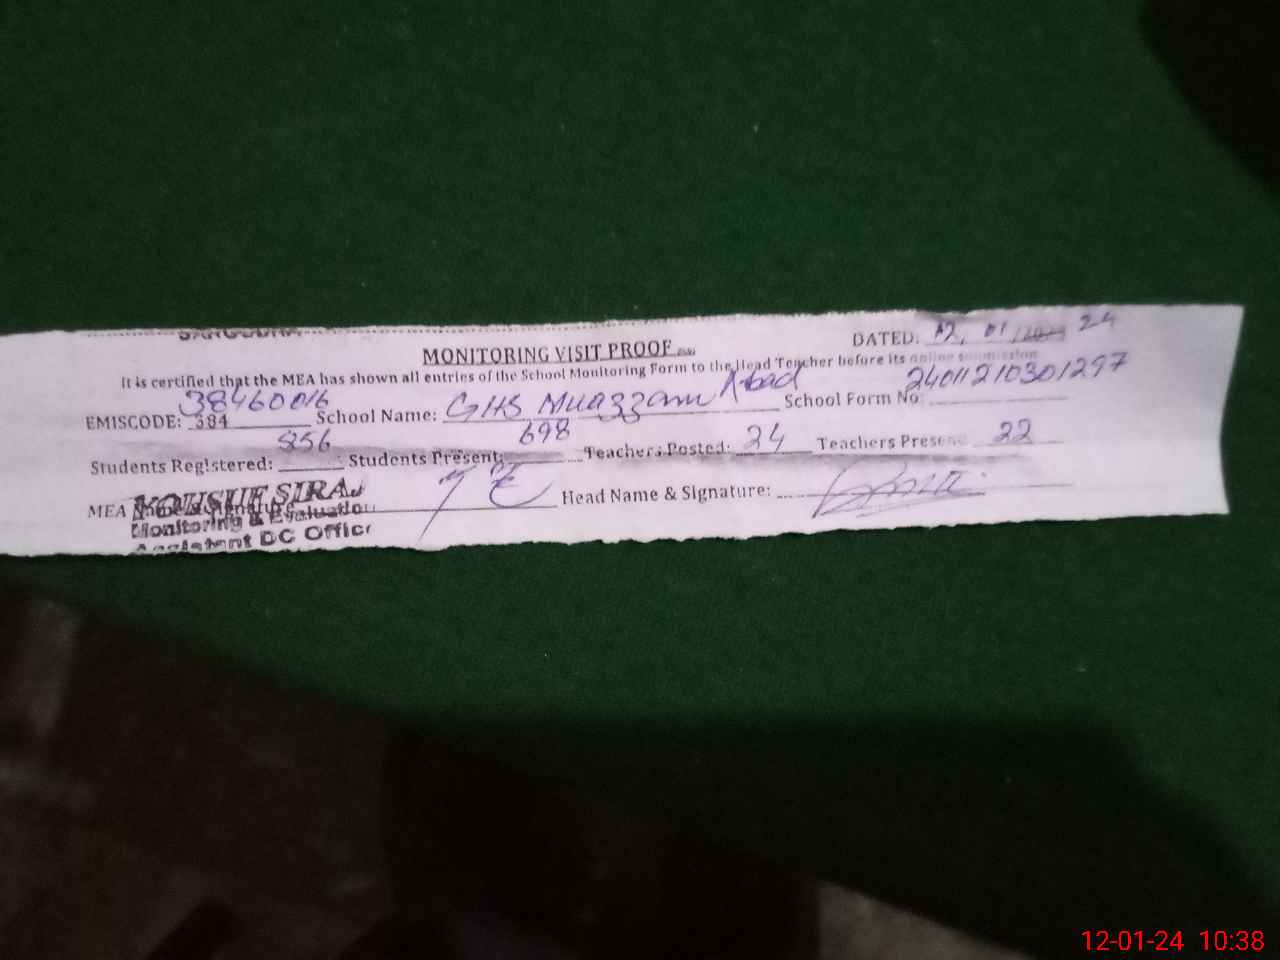 SARGODHA
MONITORING VISIT PROOF
DATED: 12, 01 /2024 24
It is certified that the MEA has shown all entries of the School Monitoring Form to the Head Teacher before its online submission
EMISCODE: 384 38460016 School Name: GHS Muazzam Abad School Form No: 24011210301297
Students Registered: 856 Students Present: 698 Teachers Posted: 24 Teachers Present 22
MEA Name & Signature Head Name & Signature:
YOUSUF SIRAJ
Monitoring & Evaluation
Assistant DC Office
12-01-24 10:38